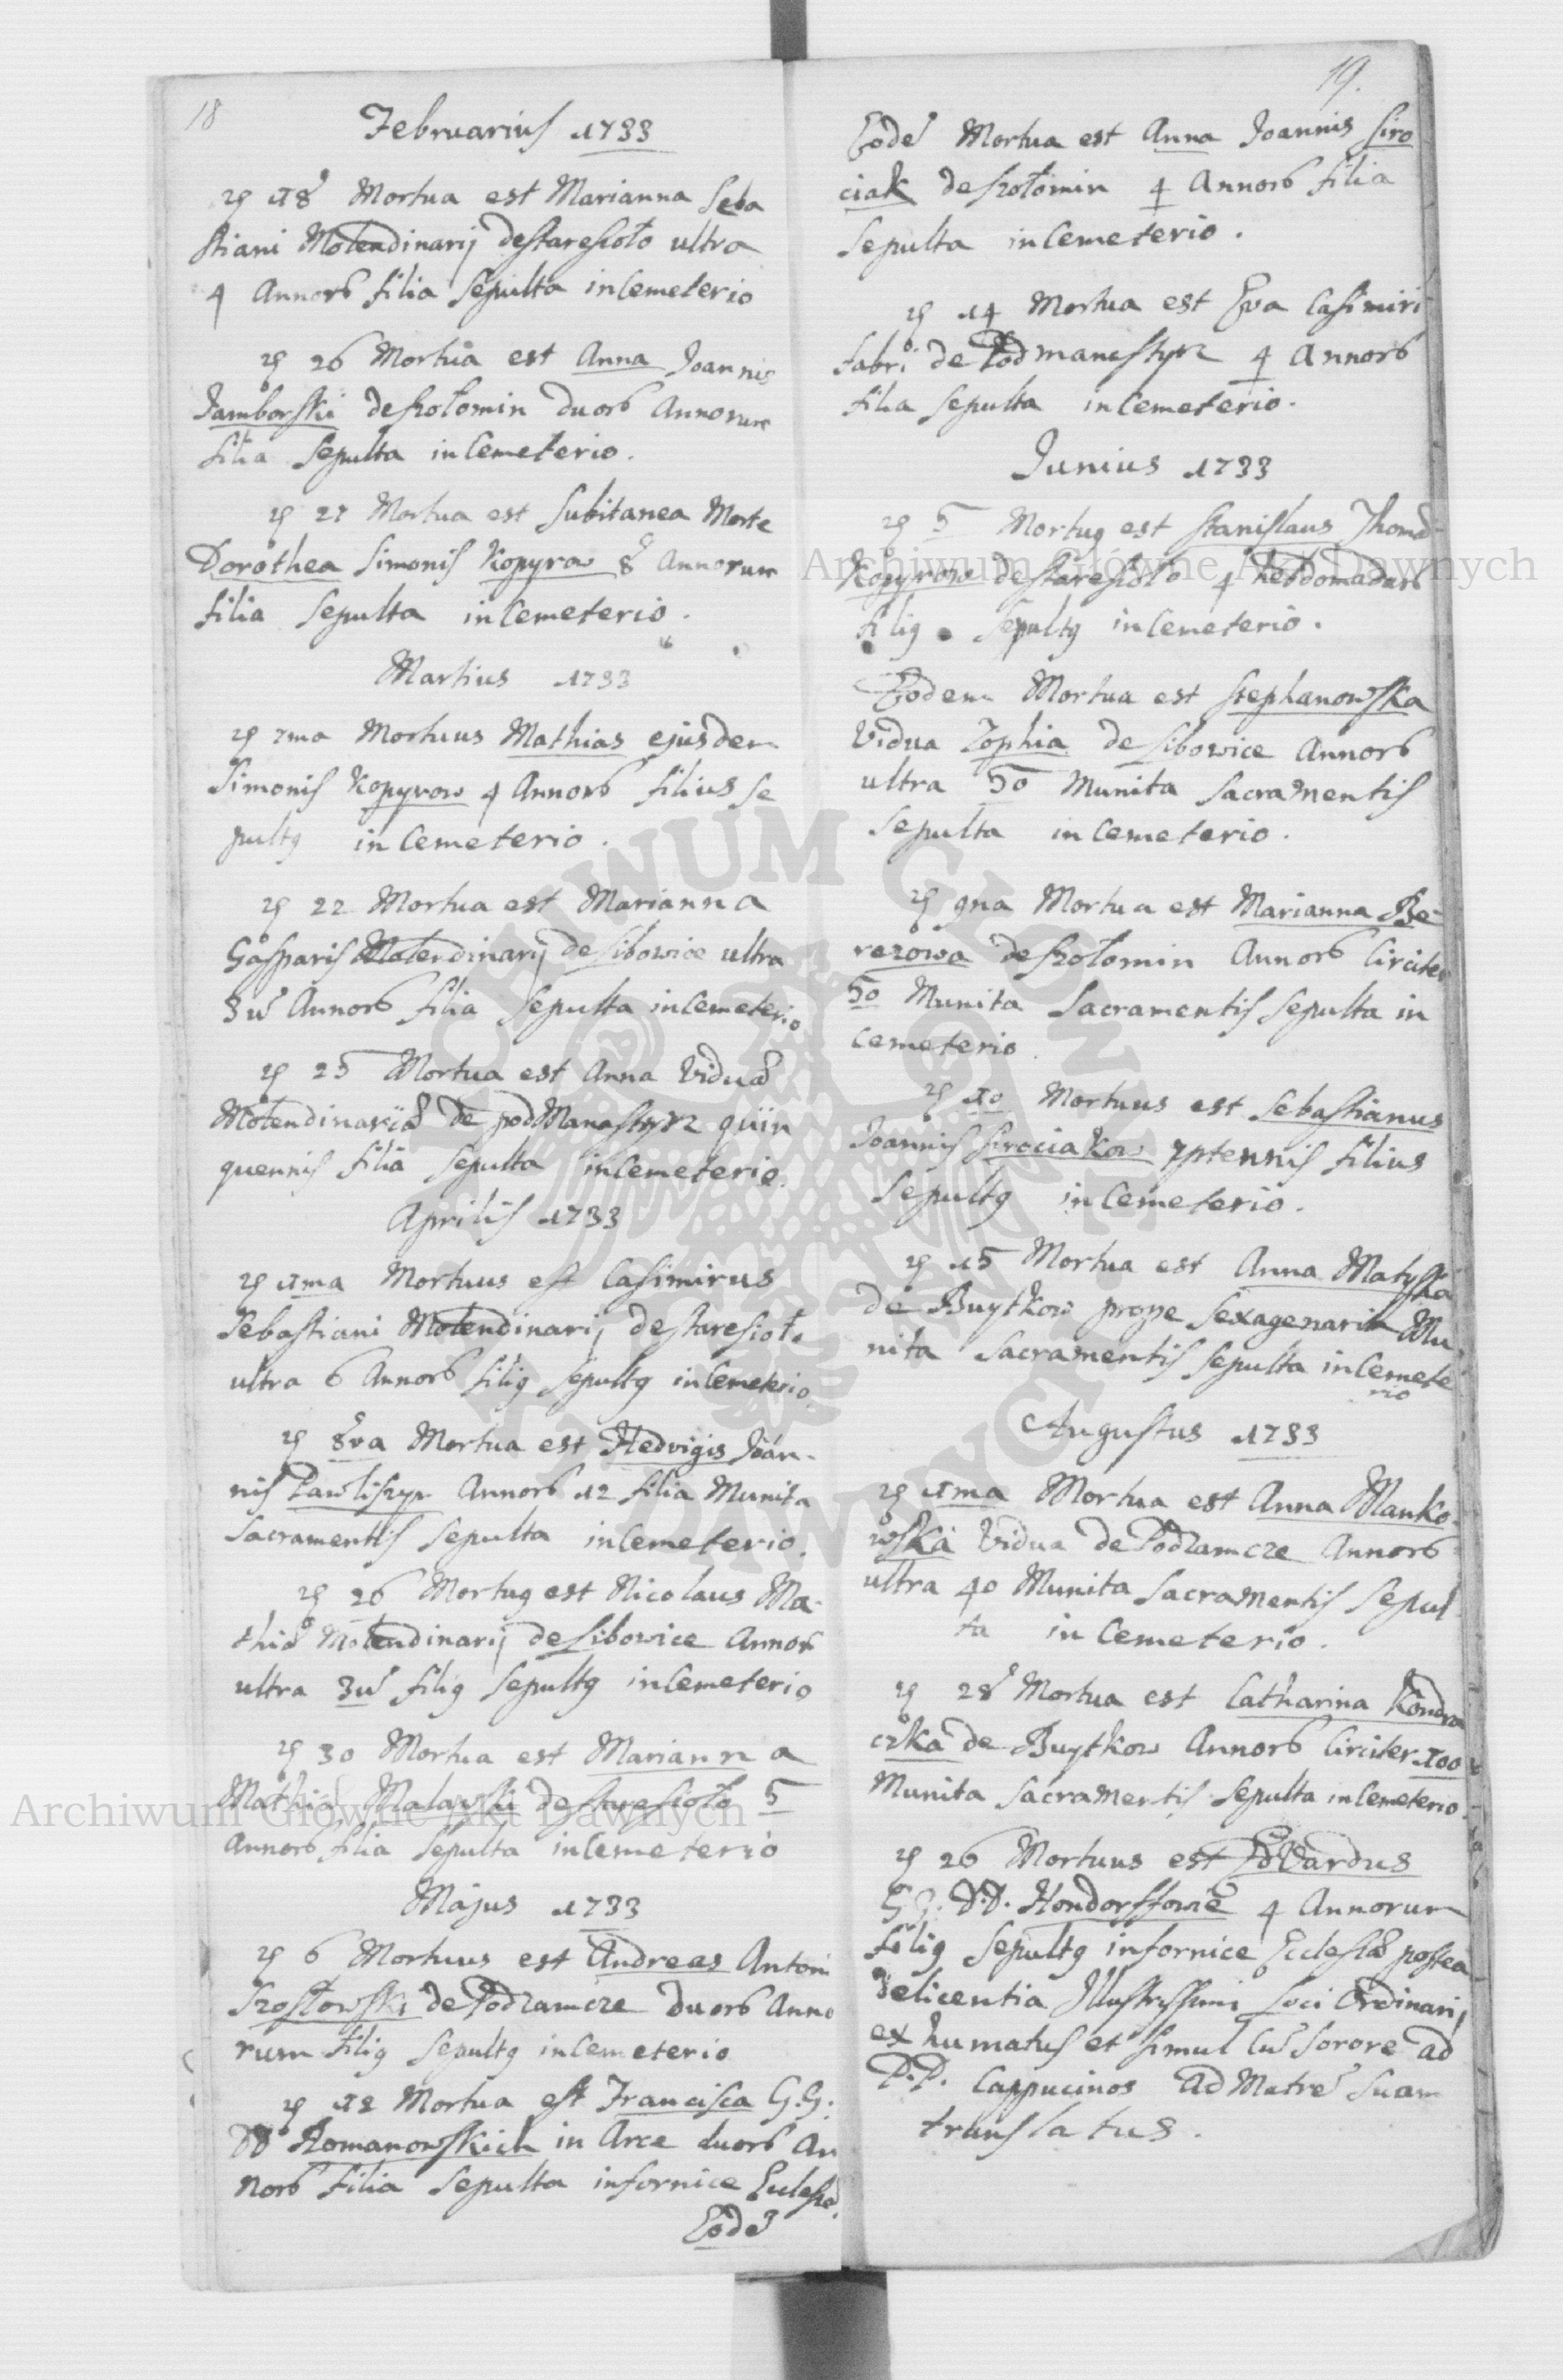 18
Februarius 1733
18 Mortua est Marianna Seba
stiani Molendinarij de Staresioło ultra
4 Annorũ filia Sepulta in Cemeterio
26 Mortua est Anna Joannis
Jamborski de Szołomin duorũ Annorum
filia Sepulta in Cemeterio.
27 Mortua est Subitanea Morte
Dorothea Simonis Kopyrow 8 Annorum
filia Sepulta in Cemeterio.
Martius 1733
7ma Mortuus Mathias ejusdem
Simonis Kopyrow 4 Annorũ filius Se
pultꝰ in Cemeterio.
22 Mortua est Marianna
Gasparis Molendinarij de Sibowice ultra
3ũ Annorũ filia Sepulta in Cemeterio
25 Mortua est Anna Viduæ
Molendinariæ de pod Manastyrz quin
quennis filia Sepulta in Cemeterio.
Aprilis 1733
1ma Mortuus est Casimirus
Sebastiani Molendinarij de Staresioło
ultra 6 Annorũ filiꝰ Sepultꝰ in Cemeterio.
8va Mortua est Hedvigis Joan-
nis Pawliszyn Annorũ 12 filia Munita
Sacramentis Sepulta in Cemeterio.
26 Mortuꝰ est Nicolaus Ma-
thiæ Molendinarij de Sibowice Annorũ
ultra 3ũ filiꝰ Sepultꝰ in Cemeterio
30 Mortua est Marianna
Mathiæ Malawski de Staresioło 5
Annorũ filia Sepulta in Cemeterio
Majus 1733
6 Mortuus est Andreas Antoni
Szostowski de Podzamcze duorũ Anno
rum filiꝰ Sepultꝰ in Cemeterio
12 Mortua est Francisca G.G.
DD Romanowskich in Arce duorũ An
norũ filia Sepulta in fornice Eclesiæ.
Eodẽ
19.
Eodẽ Mortua est Anna Joannis Siro
ciak de Szołomin 4 Annorũ filia
Sepulta in Cemeterio.
14 Mortua est Eva Casimiri
fabri de Podmanastyrz 4 Annorũ
filia Sepulta in Cemeterio.
Junius 1733
5 Mortuꝰ est Stanislaus Thomæ
Kopyrow de Staresioło 4 hebdomadarũ
filiꝰ Sepultꝰ in Cemeterio.
Eodem Mortua est Stephanowska
Vidua Zophia de Sibowice Annorũ
ultra 50 Munita Sacramentis
Sepulta in Cemeterio.
9na Mortua est Marianna Be-
rezowa de Szołomin Annorũ Circiter
50 Munita Sacramentis Sepulta in
Cemeterio
10 Mortuus est Sebastianus
Joannis Sirociakow 7ptennis filius
Sepultꝰ in Cemeterio.
15 Mortua est Anna Matyska
de Buytkow prope Sexagenaria Mu
nita Sacramentis Sepulta in Cemete
rio
Augustus 1733
1ma Mortua est Anna Manko-
wska Vidua de Podzamcze Annorũ
ultra 40 Munita Sacramentis Sepul
ta in Cemeterio.
28 Mortua est Catharina Kondra
czka de Buytkow Annorũ Circiter 100
Munita Sacramentis Sepulta in Cemeterio.
26 Mortuus est Edvardus
G.G. D.D. 4 Annorum
filiꝰ Sepultꝰ in fornice Ecclesiæ postea
de licentia Illustrissimi Loci Ordinarij
ex humatus et simul cũ Sorore ad
P.P. Cappucinos ad Matrẽ Suam
translatus.
Archiwum Główne Akt Dawnych
Archiwum Główne Akt Dawnych